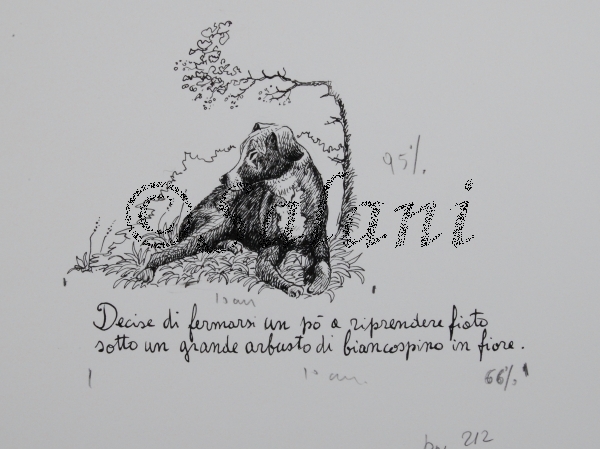 95%
© Salani
10 cm
Decise di fermarsi un pò a riprendere fiato
sotto un grande arbusto di biancospino in fiore.
10 cm.
66%
212